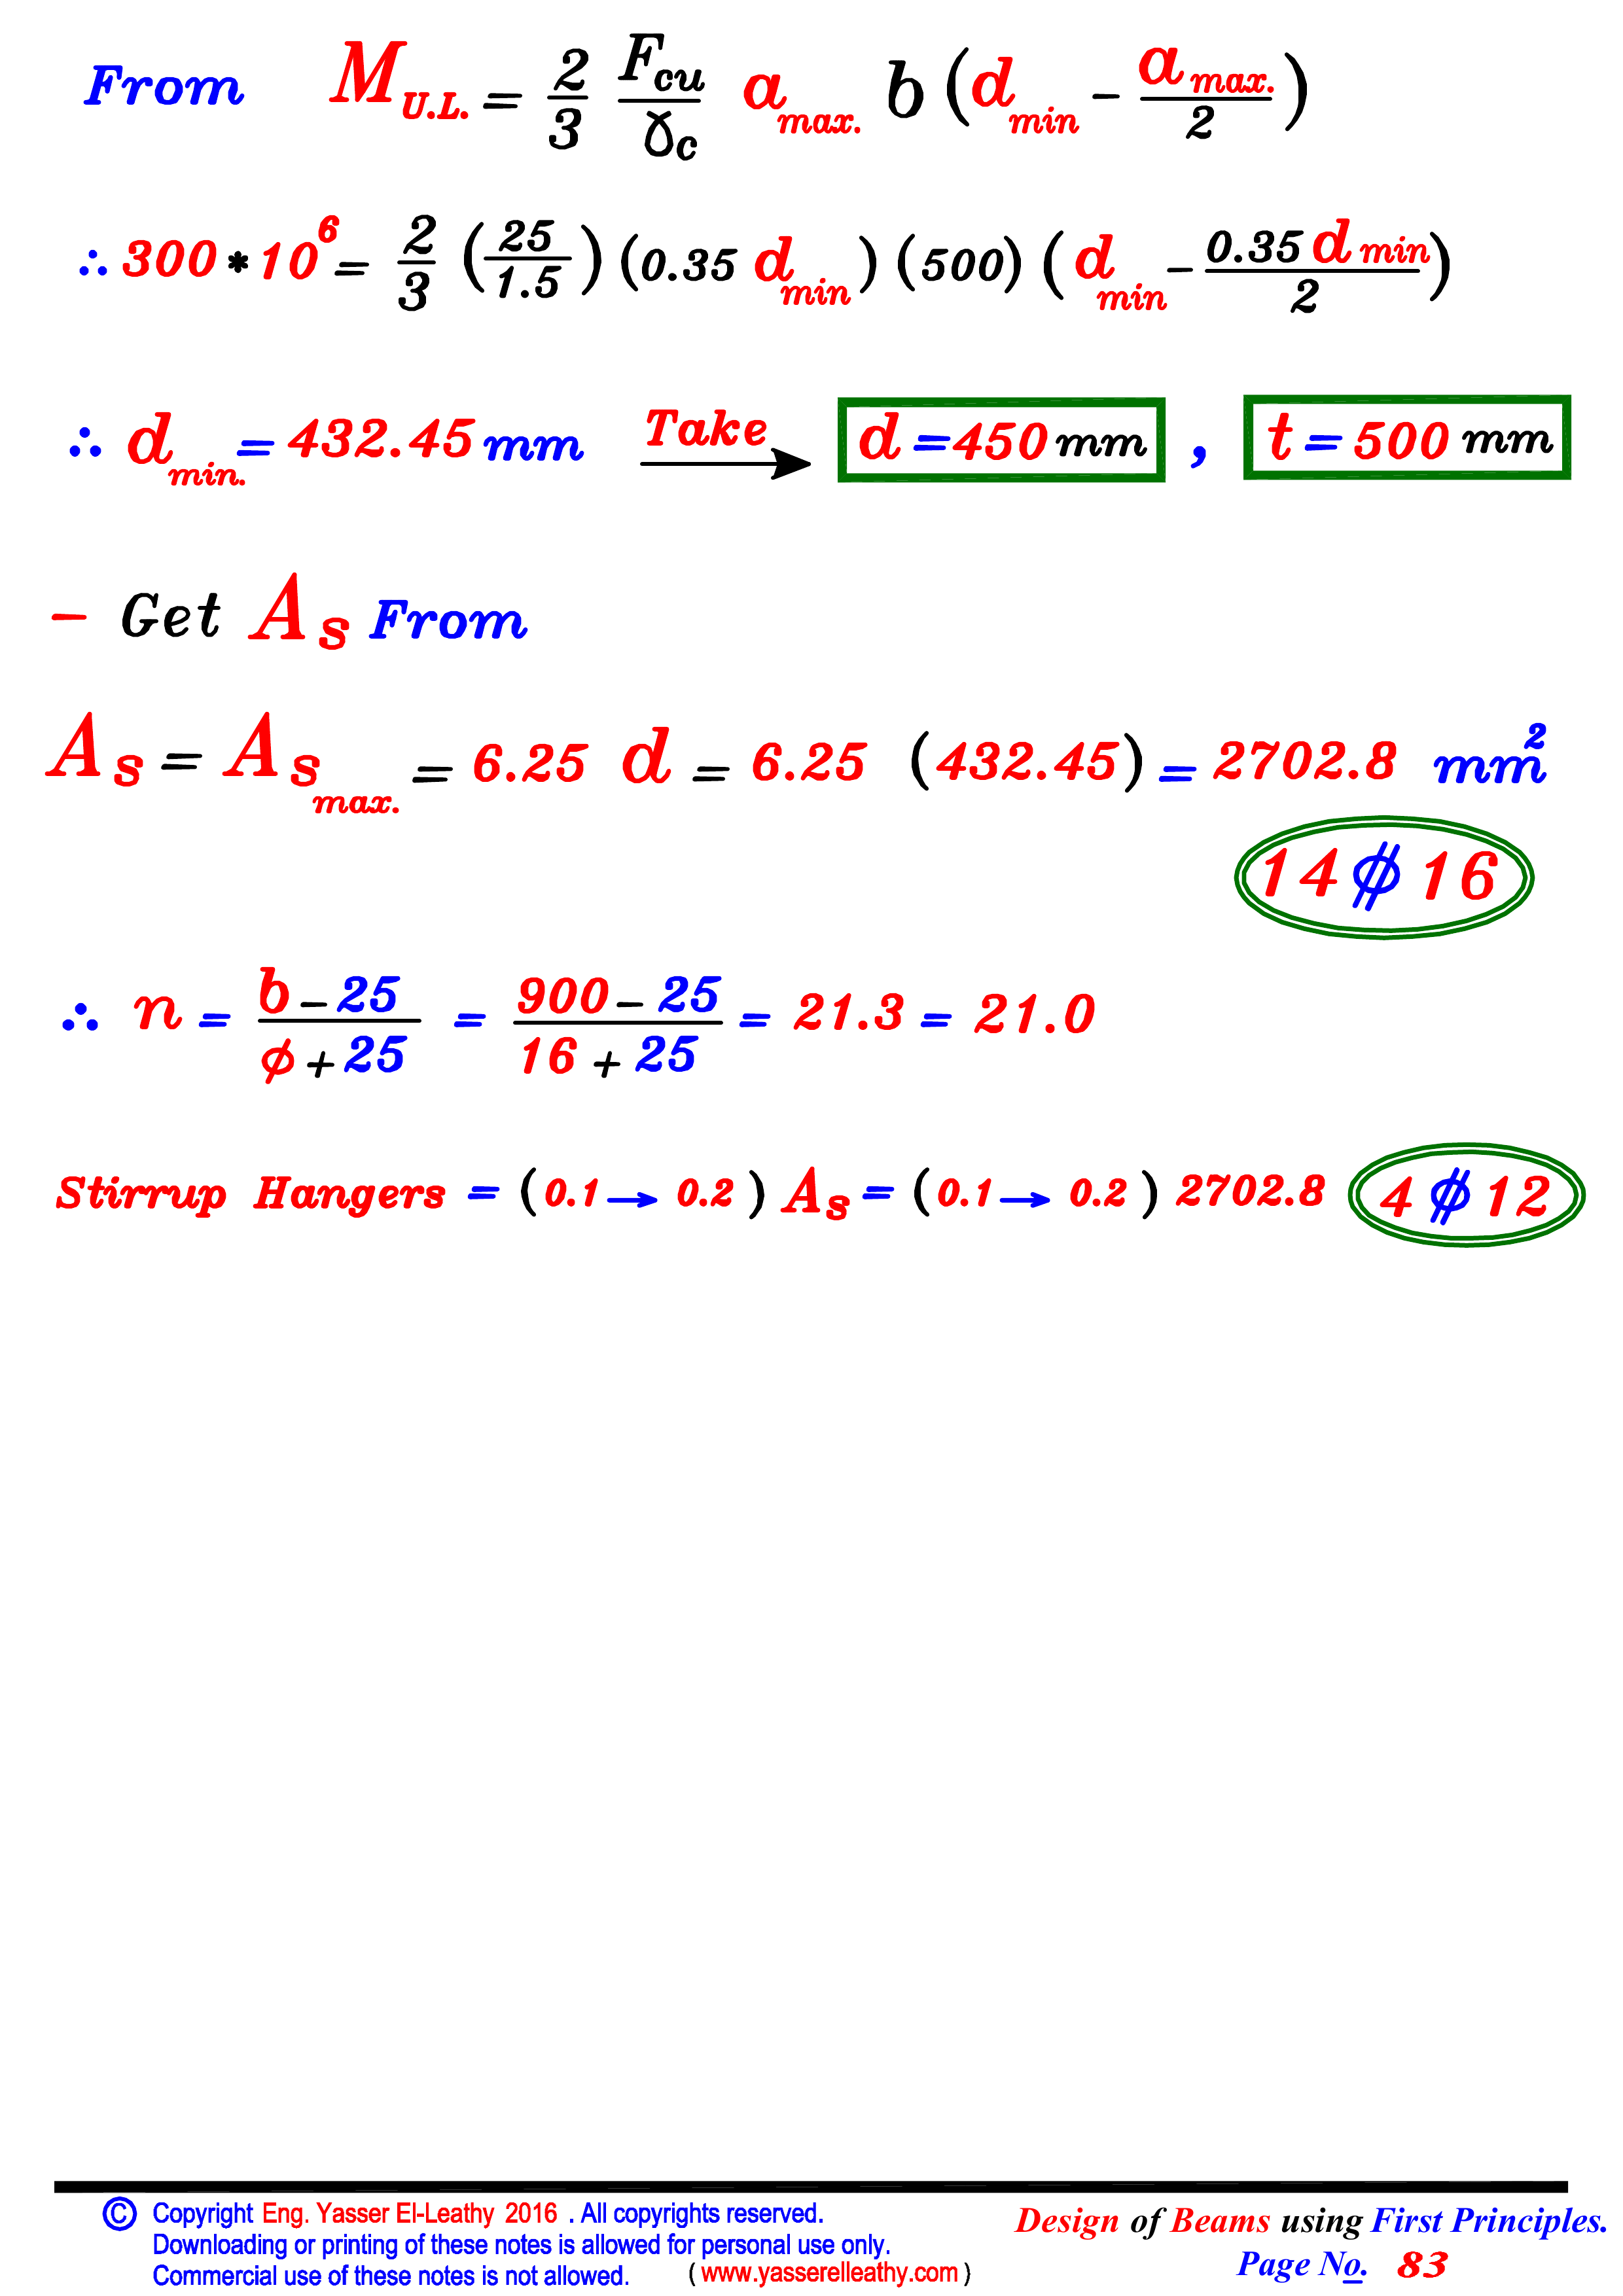 From M U.L. = 2/3 Fcu/γc a max. b (d min - a max./2)
∴ 300 * 10^6 = 2/3 (25/1.5) (0.35 d min) (500) (d min - 0.35 d min/2)
∴ d min. = 432.45 mm Take → d = 450 mm , t = 500 mm
- Get As From
As = As max. = 6.25 d = 6.25 (432.45) = 2702.8 mm²
14 ⌀ 16
∴ n = b - 25/ϕ + 25 = 900 - 25/16 + 25 = 21.3 = 21.0
Stirrup Hangers = (0.1 → 0.2) As = (0.1 → 0.2) 2702.8 4 ⌀ 12
© Copyright Eng. Yasser El-Leathy 2016 . All copyrights reserved.
Downloading or printing of these notes is allowed for personal use only.
Commercial use of these notes is not allowed. ( www.yasserelleathy.com )
Design of Beams using First Principles.
Page No. 83